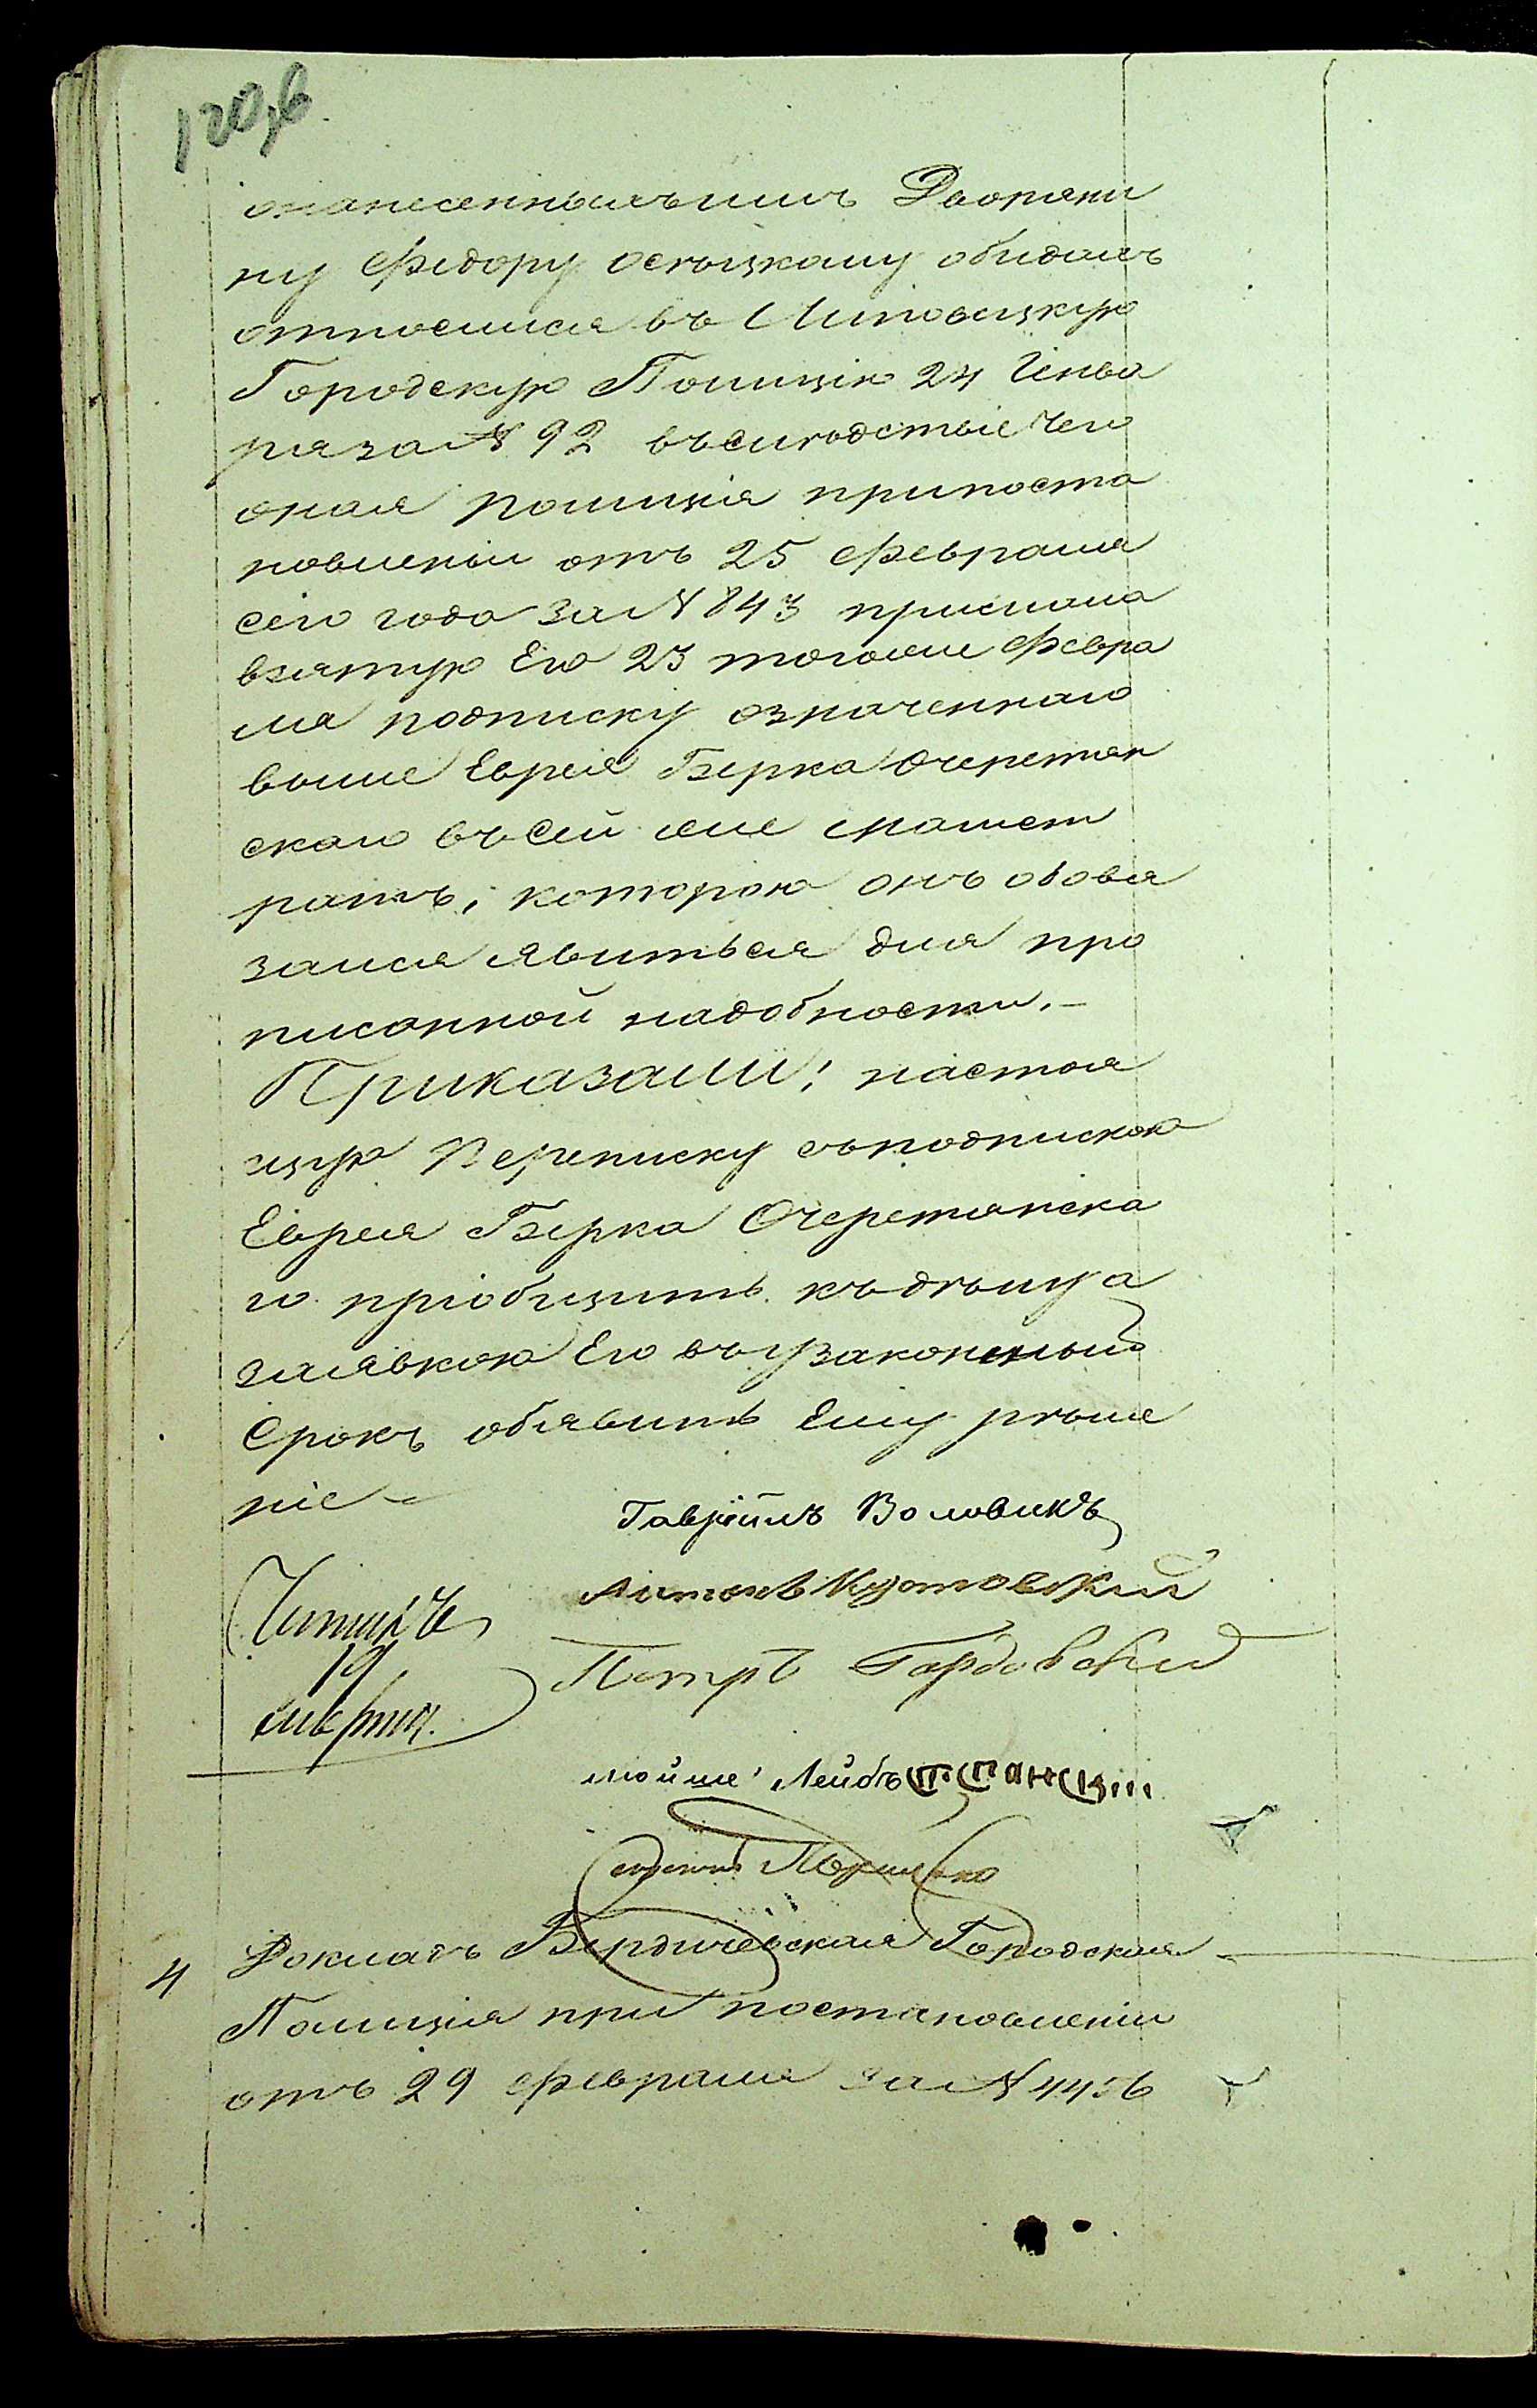 120,6
онанесенныхъимъ Дворяни
ну Федору осецкому обидахъ
относился въ Липовецкую
Городскую Полицію 24 Генва
ря за № 92 въслѣдствіе чего
оная полиція припоста
новленіи отъ 25 Февраля
сего года за № 843 прислала
взятую Его 23 тогоже Февра
ля подписку означеннаго
выше Еврея Берка Очеретян
скаго въ Сей же магист
ратъ, которою онъ обовя
зался явиться для про
писанной надобности. –
Приказали: настоя
щую Переписку сподпискою
Еврея Берка Очеретянска
го пріобщить къ дѣлу а
заявкою Его въ узаконеный
Срокъ обявить Ему рѣше
ніе –
Гавріилъ Воловикъ
Антонъ Кутовский
Читалъ
19
Петръ Гордовский
Мойше Лейбъ
Секретарь
4 Докладъ Бердичевская Городская
Полиція при постановленіи
отъ 29 Февраля за № 4456